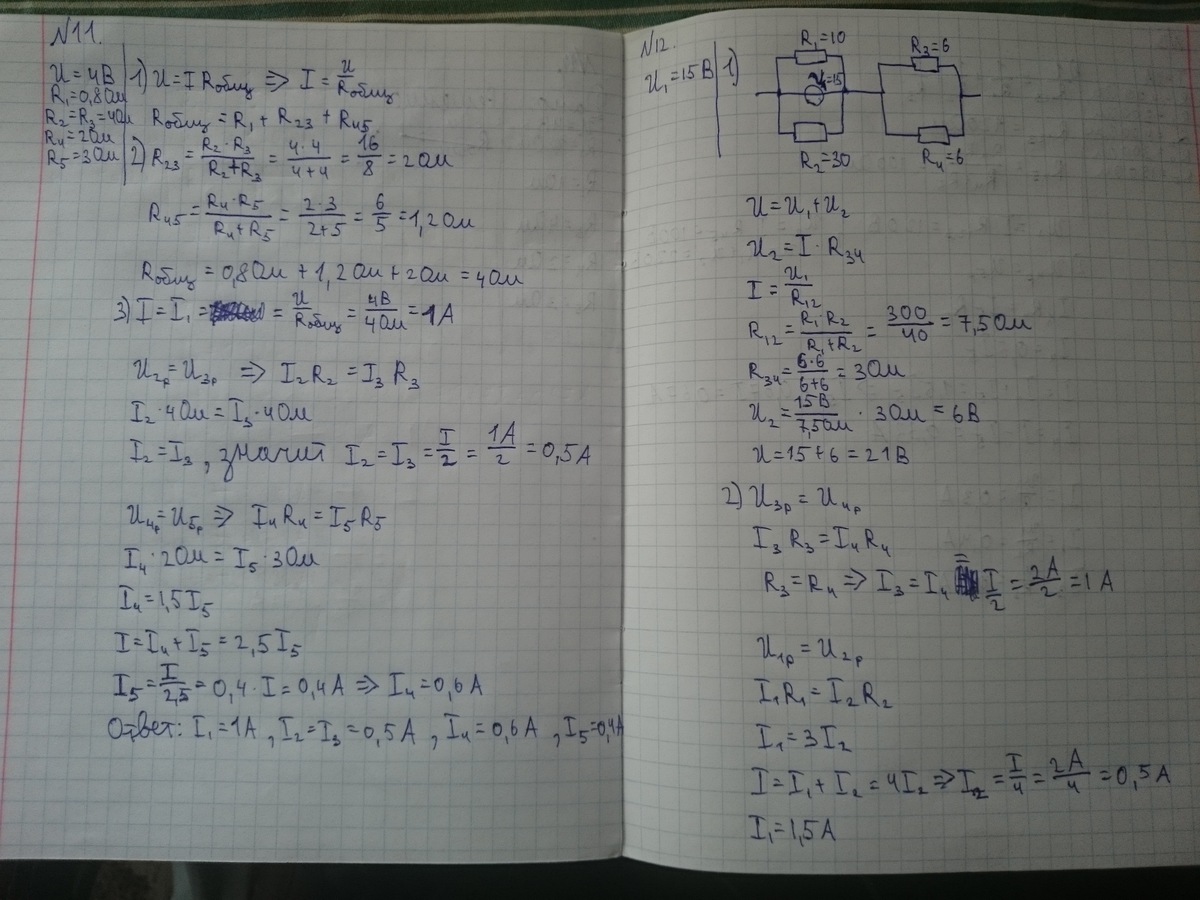 №11.
U = 4В
R₁=0,8Ом
R₂=R₃=4Ом
R₄=2Ом
R₅=3Ом
1) U=I Rобщ => I = U/Rобщ
Rобщ = R₁ + R₂₃ + R₄₅
2) R₂₃ = R₂·R₃/R₂+R₃ = 4·4/4+4 = 16/8 = 2Ом
R₄₅ = R₄·R₅/R₄+R₅ = 2·3/2+5 = 6/5 = 1,2Ом
Rобщ = 0,8Ом + 1,2Ом + 2Ом = 4Ом
3) I = I₁ = = U/Rобщ = 4В/4Ом = 1А
U₂р = U₃р => I₂R₂ = I₃R₃
I₂·4Ом = I₃·4Ом
I₂=I₃, значит I₂ = I₃ = I/2 = 1А/2 = 0,5А
U₄р = U₅р => I₄R₄ = I₅R₅
I₄·2Ом = I₅·3Ом
I₄=1,5I₅
I=I₄+I₅=2,5I₅
I₅ = I/2,5 = 0,4·I = 0,4А => I₄=0,6А
Ответ: I₁=1А, I₂=I₃=0,5А, I₄=0,6А, I₅=0,4А
№12.
U₁=15В
1)
R₁=10
R₃=6
=15
R₂=30
R₄=6
U=U₁+U₂
U₂=I·R₃₄
I = U₁/R₁₂
R₁₂ = R₁·R₂/R₁+R₂ = 300/40 = 7,5Ом
R₃₄ = 6·6/6+6 = 3Ом
U₂ = 15В/7,5Ом · 3Ом = 6В
U=15+6=21В
2) U₃р = U₄р
I₃R₃=I₄R₄
R₃=R₄ => I₃=I₄ = I/2 = 2А/2 = 1А
U₁р = U₂р
I₁R₁=I₂R₂
I₁=3I₂
I=I₁+I₂=4I₂ => I₂ = I/4 = 2А/4 = 0,5А
I₁=1,5А